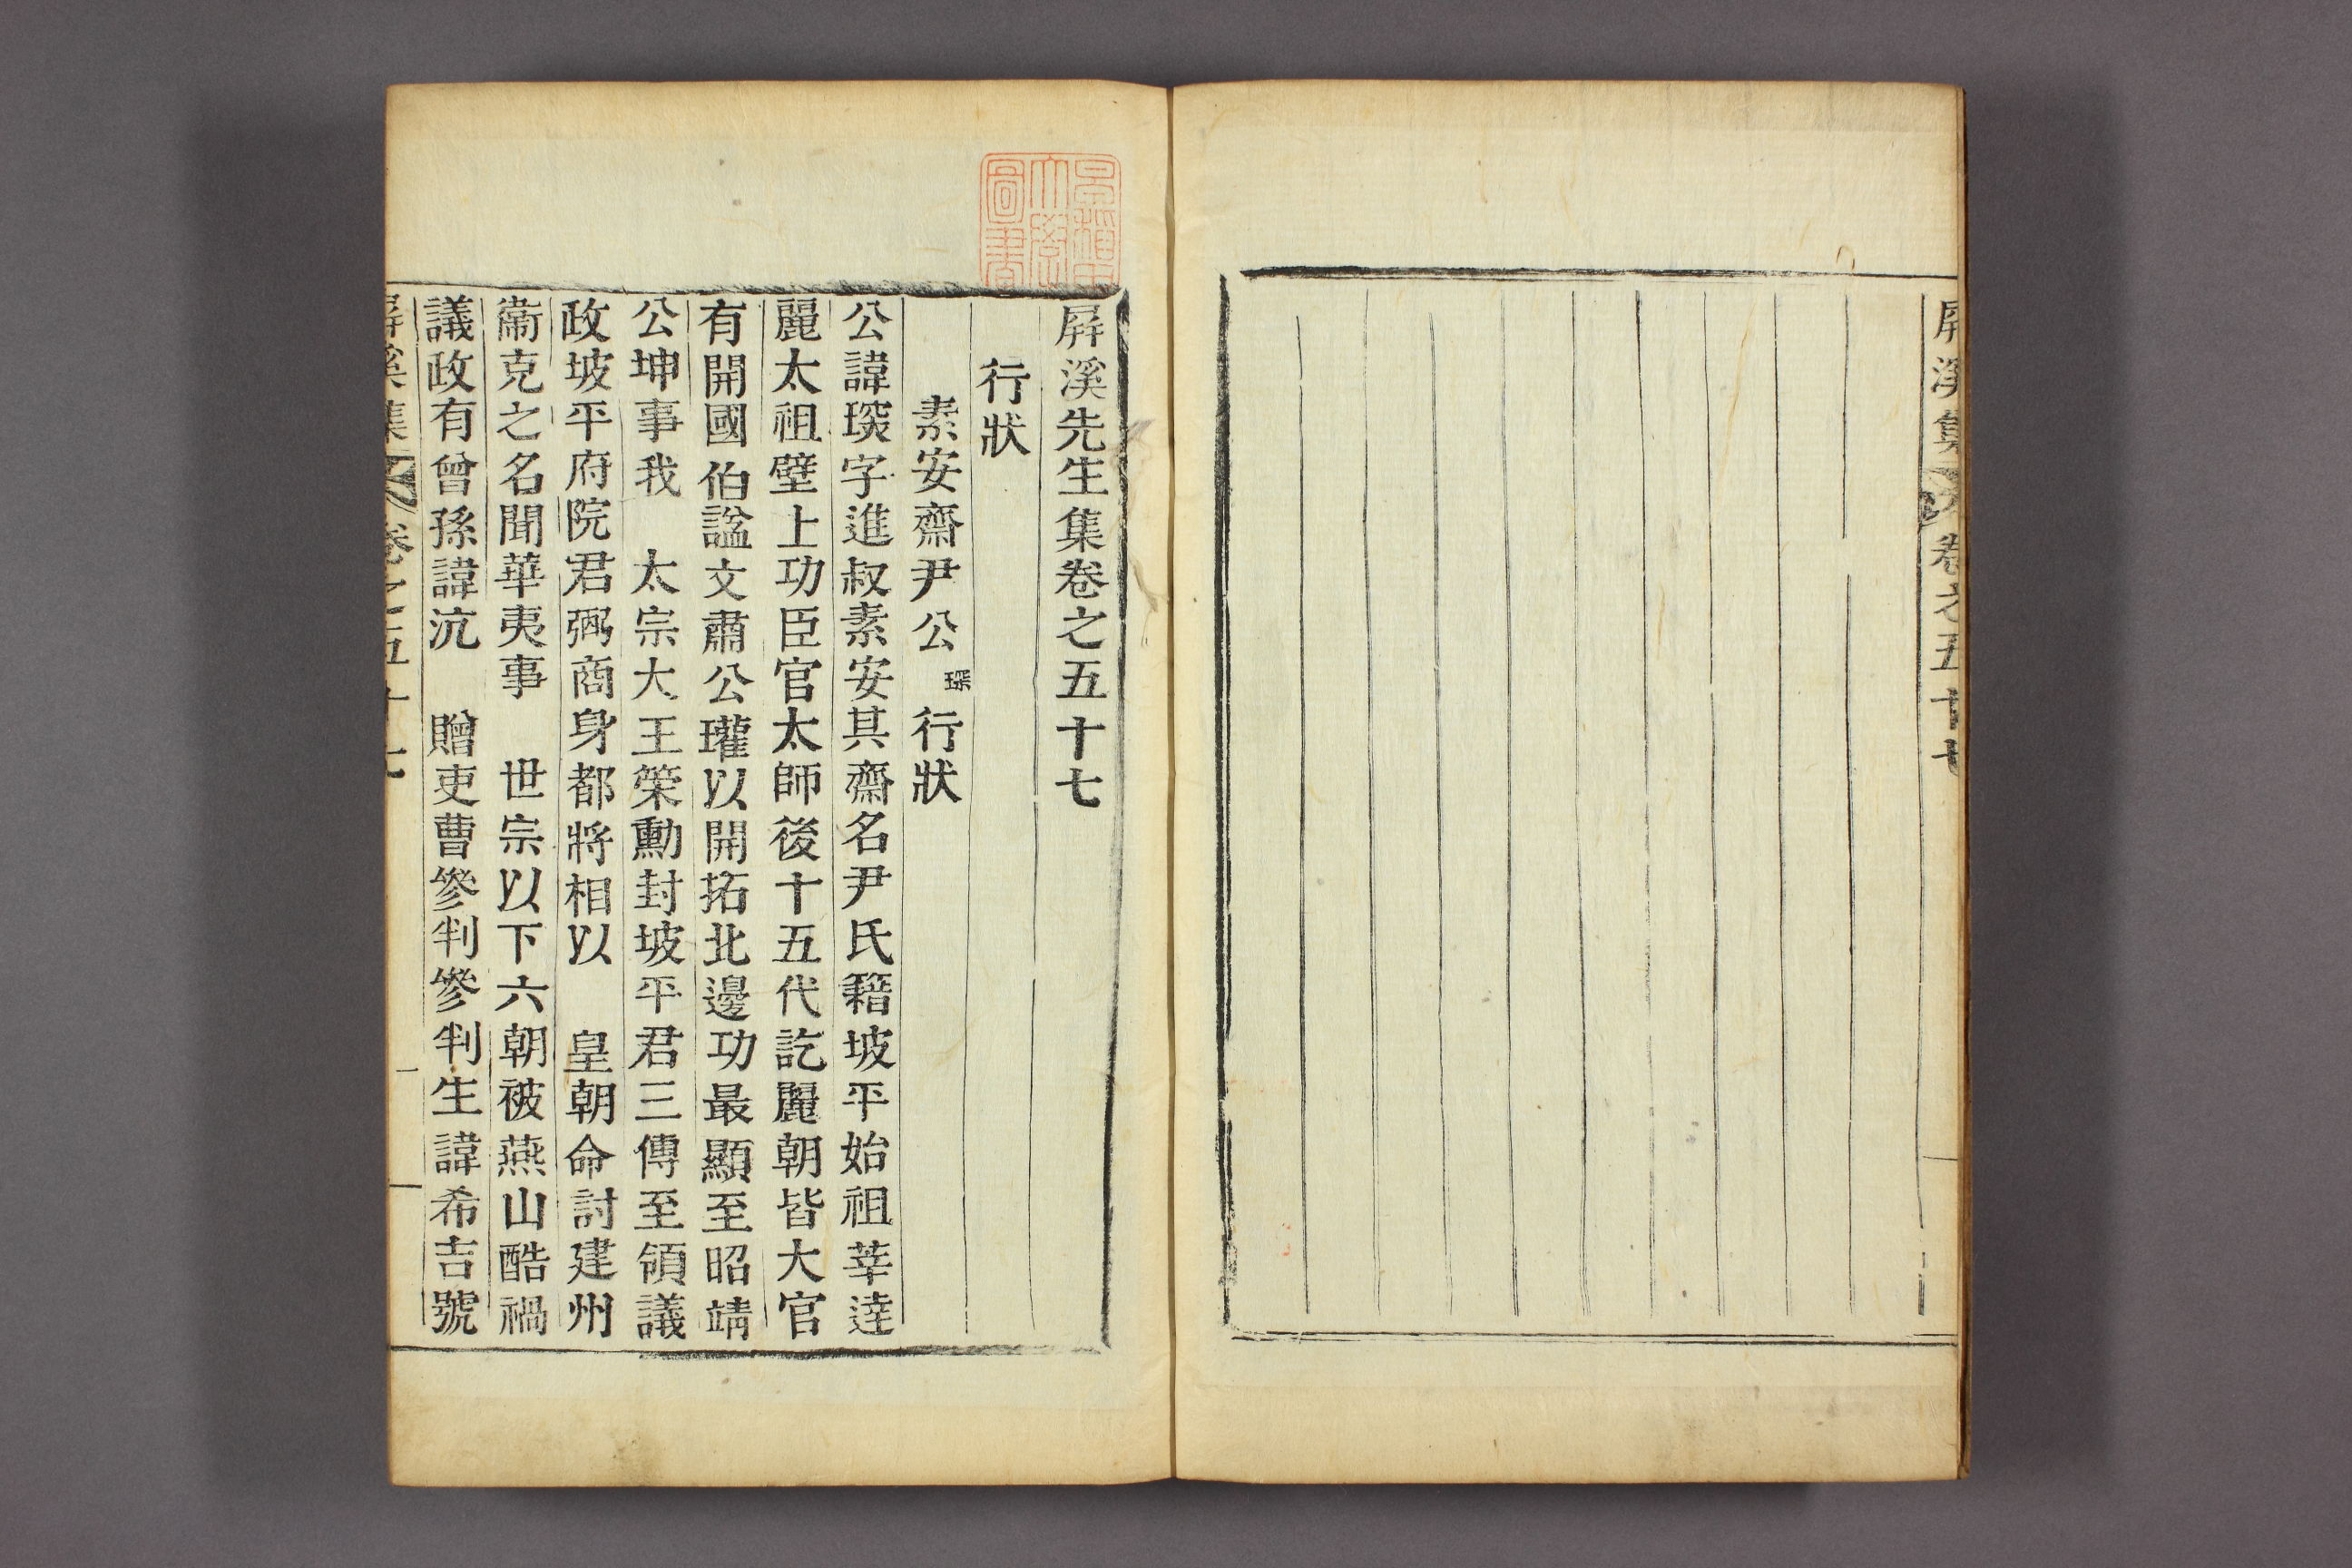 屛溪集 卷之五十七
屛溪先生集卷之五十七
行狀
素安齋尹公 琛 行狀
公諱琛字進叔素安其齋名尹氏籍坡平始祖莘達
麗太祖壁上功臣官太師後十五代訖麗朝皆大官
有開國伯諡文肅公瓘以開拓北邊功最顯至昭靖
公坤事我 太宗大王策勳封坡平君三傳至領議
政坡平府院君弼商身都將相以 皇朝命討建州
衞克之名聞華夷事 世宗以下六朝被燕山酷禍
議政有曾孫諱沆 贈吏曹參判參判生諱希吉號
屛溪集 卷之五十七 一